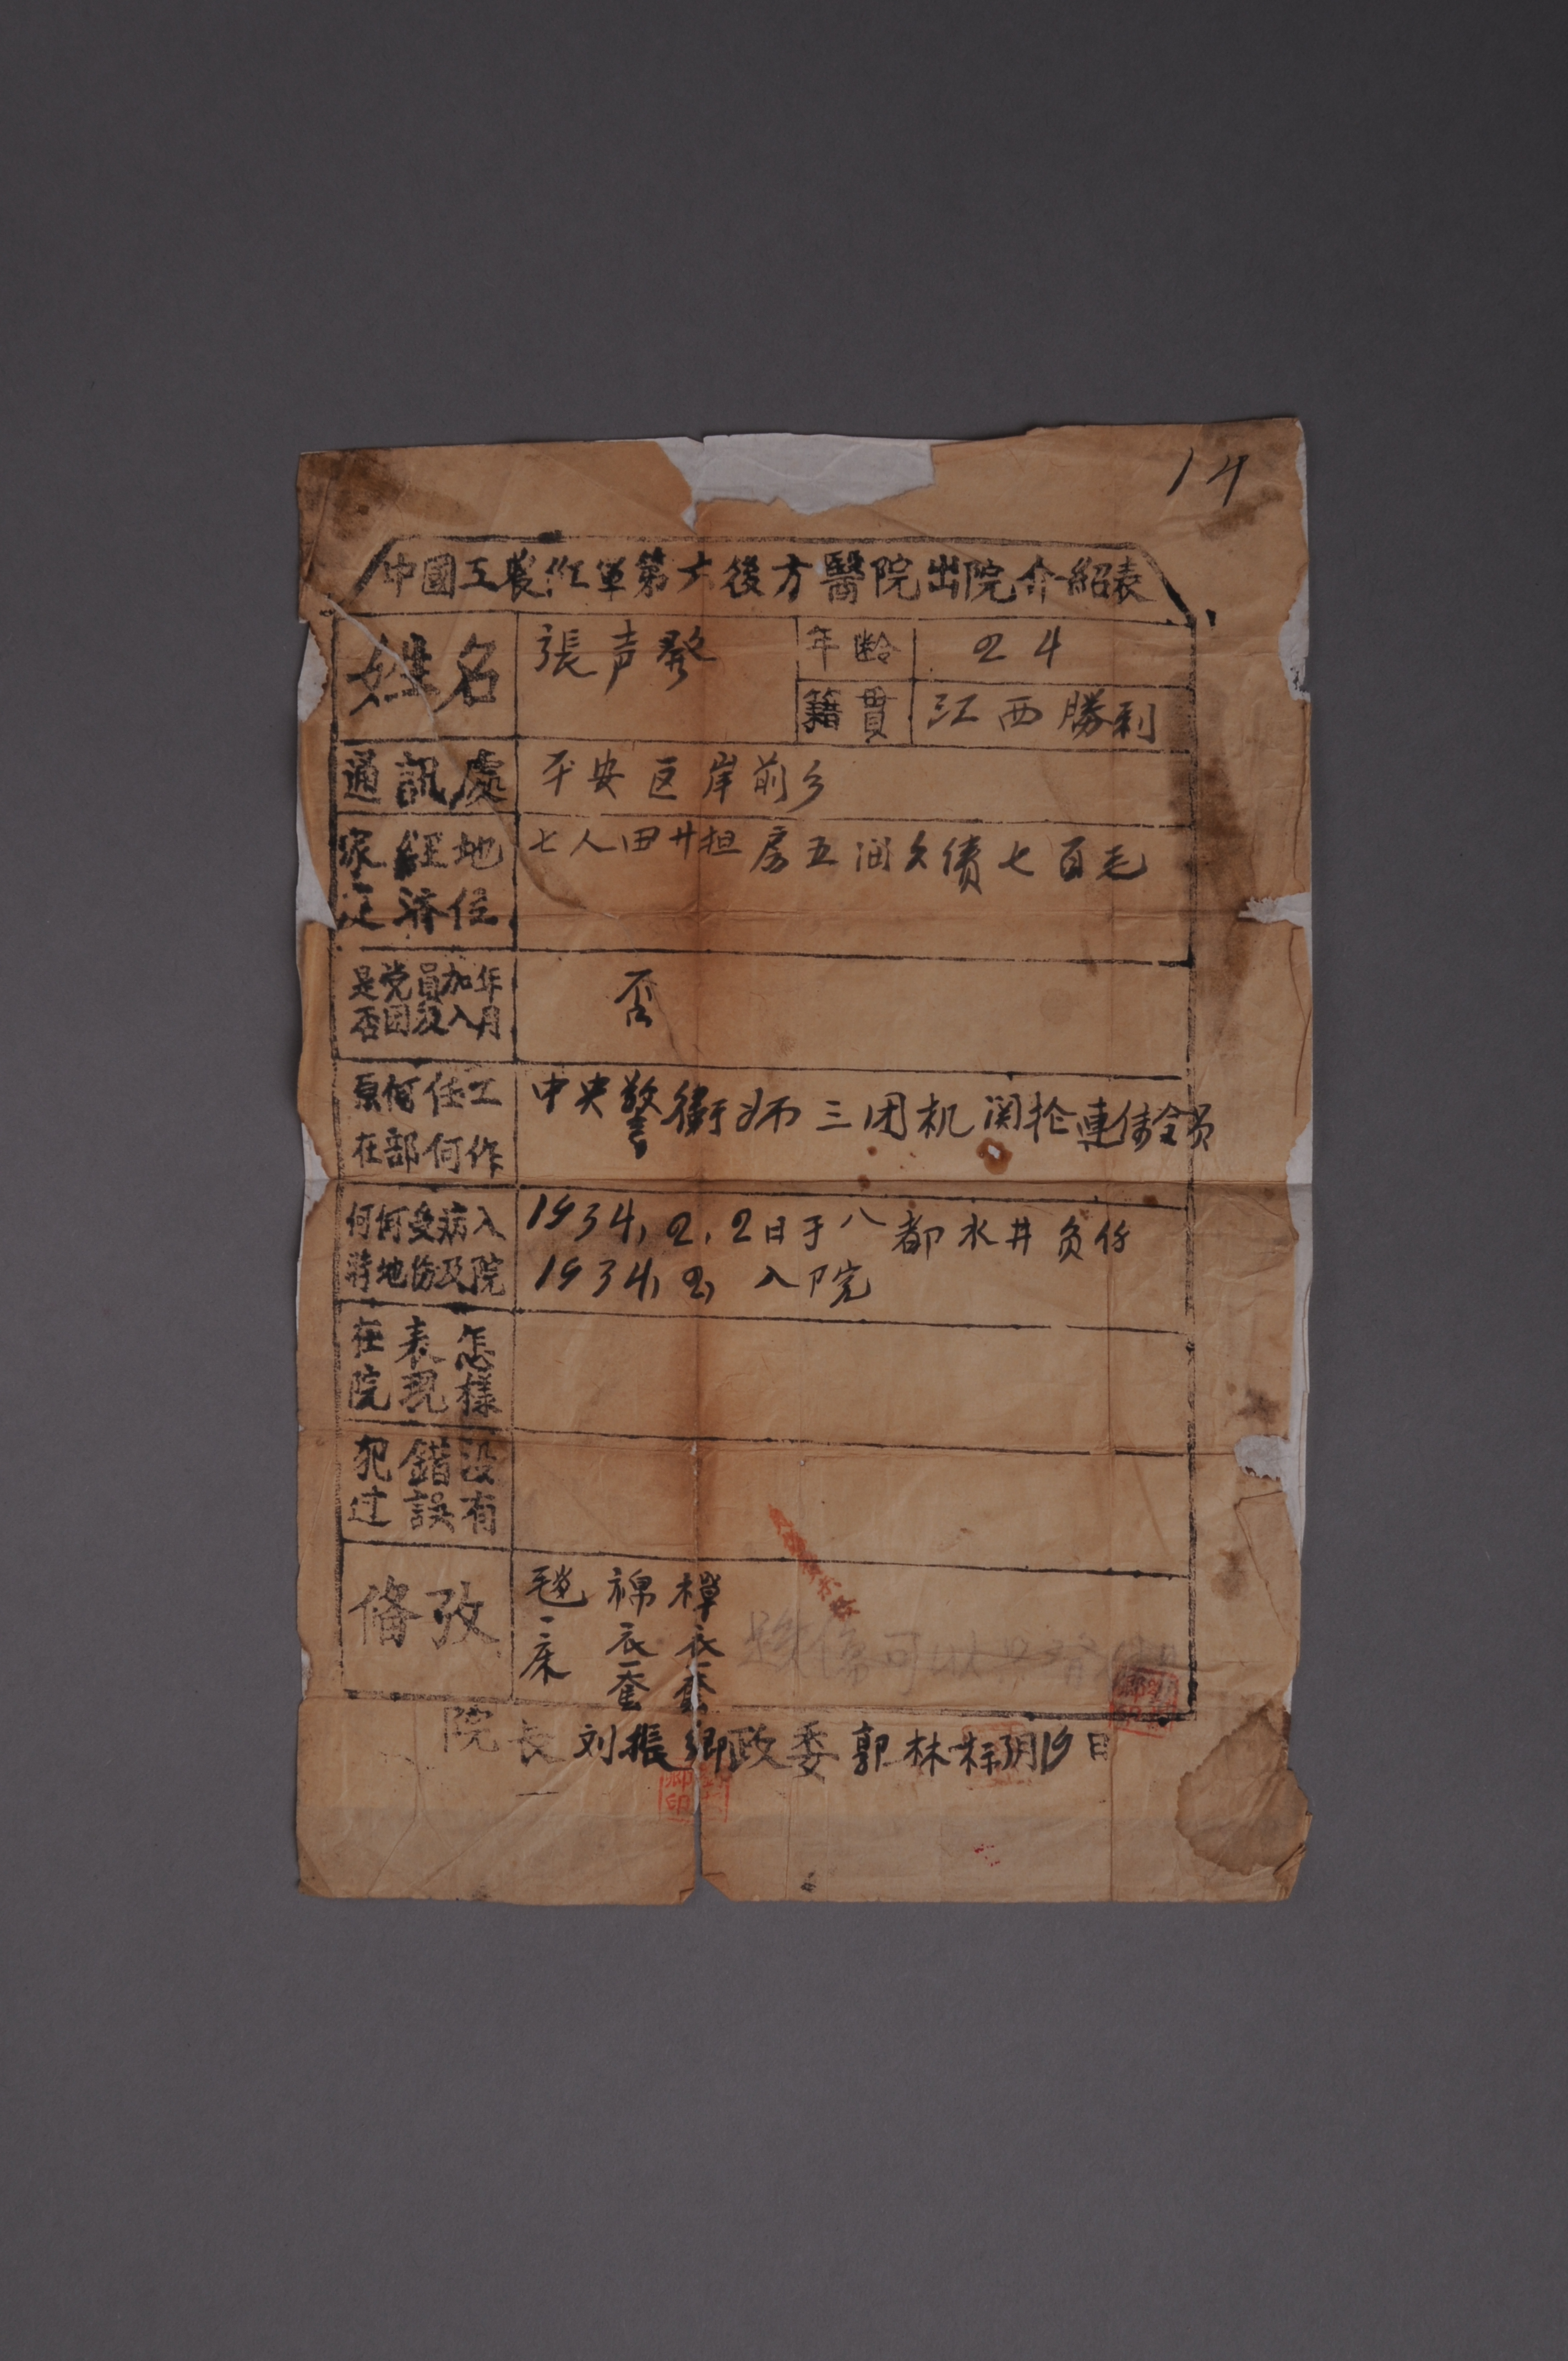 14
中國工農红軍第六後方醫院出院介紹表
姓名 張声發 年齡 24
籍貫 江西勝利
通訊處 平安区岸前乡
家庭經濟地位 七人田廿担房五间欠债七百毛
是否党團員及加入年月 否
原在何部任何工作 中央警衛师三团机関枪連传令员
何時何地受伤病及入院 1934,2,2日于八都水井负伤
1934,2, 入院
在院表現怎樣
犯过錯誤没有
備攷 毯一床 棉衣一套 樿衣一套
院長刘振鄉政委郭林 月19日